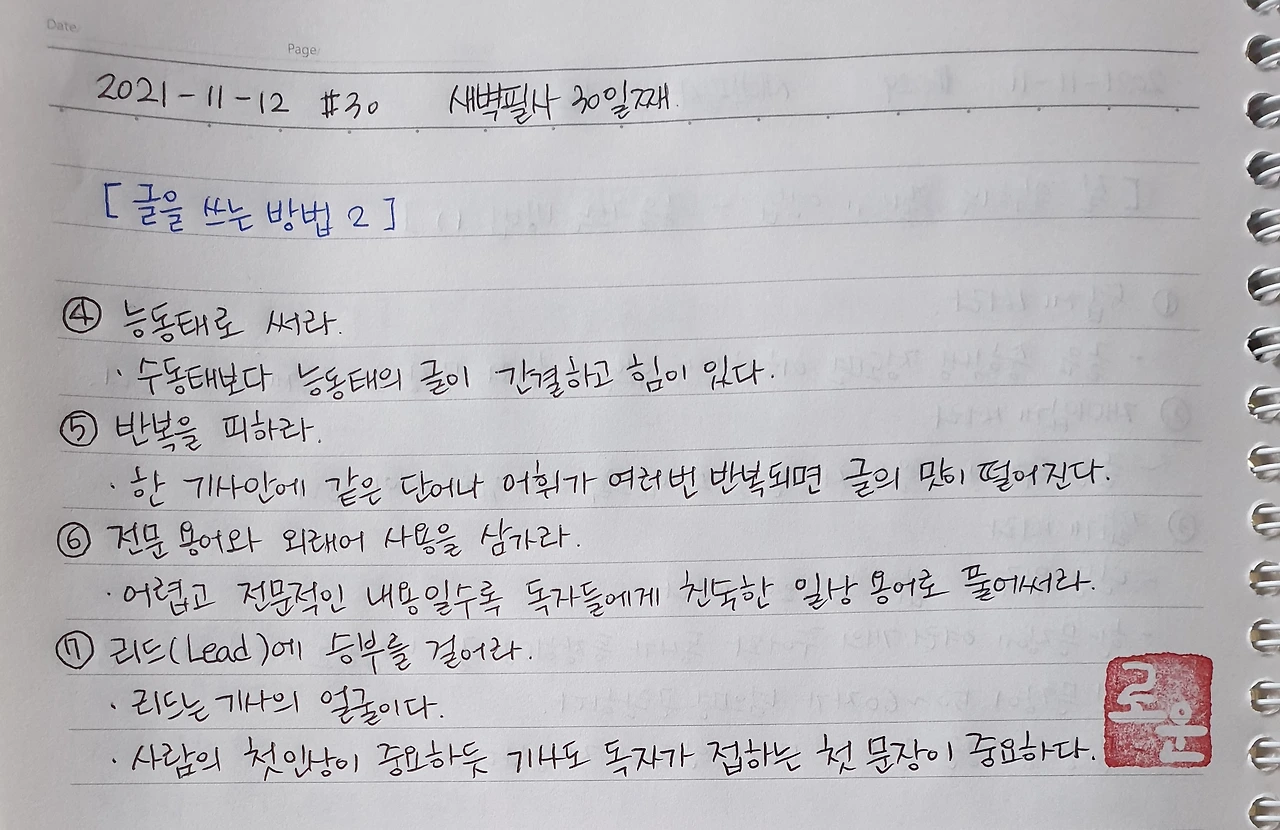 Date:
Page:
2021-11-12 #30 새벽필사 30일째.
[글을 쓰는 방법 2]
④ 능동태로 써라.
· 수동태보다 능동태의 글이 간결하고 힘이 있다.
⑤ 반복을 피하라.
· 한 기사안에 같은 단어나 어휘가 여러번 반복되면 글의 맛이 떨어진다.
⑥ 전문 용어와 외래어 사용을 삼가라.
· 어렵고 전문적인 내용일수록 독자들에게 친숙한 일상 용어로 풀어써라.
⑦ 리드(Lead)에 승부를 걸어라.
· 리드는 기사의 얼굴이다.
· 사람의 첫인상이 중요하듯 기사도 독자가 접하는 첫 문장이 중요하다.
로운